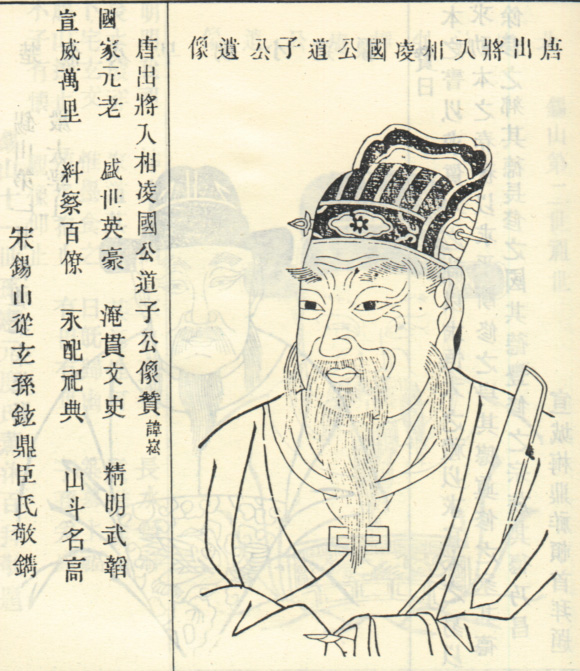 唐出將入相凌國公道子公遺像
唐出將入相凌國公道子公像贊 諱崧
國家元老 盛世英豪 淹貫文史 精明武韜
宣威萬里 糾察百僚 永配祀典 山斗名高
宋錫山從玄孫鉉鼎臣氏敬鐫